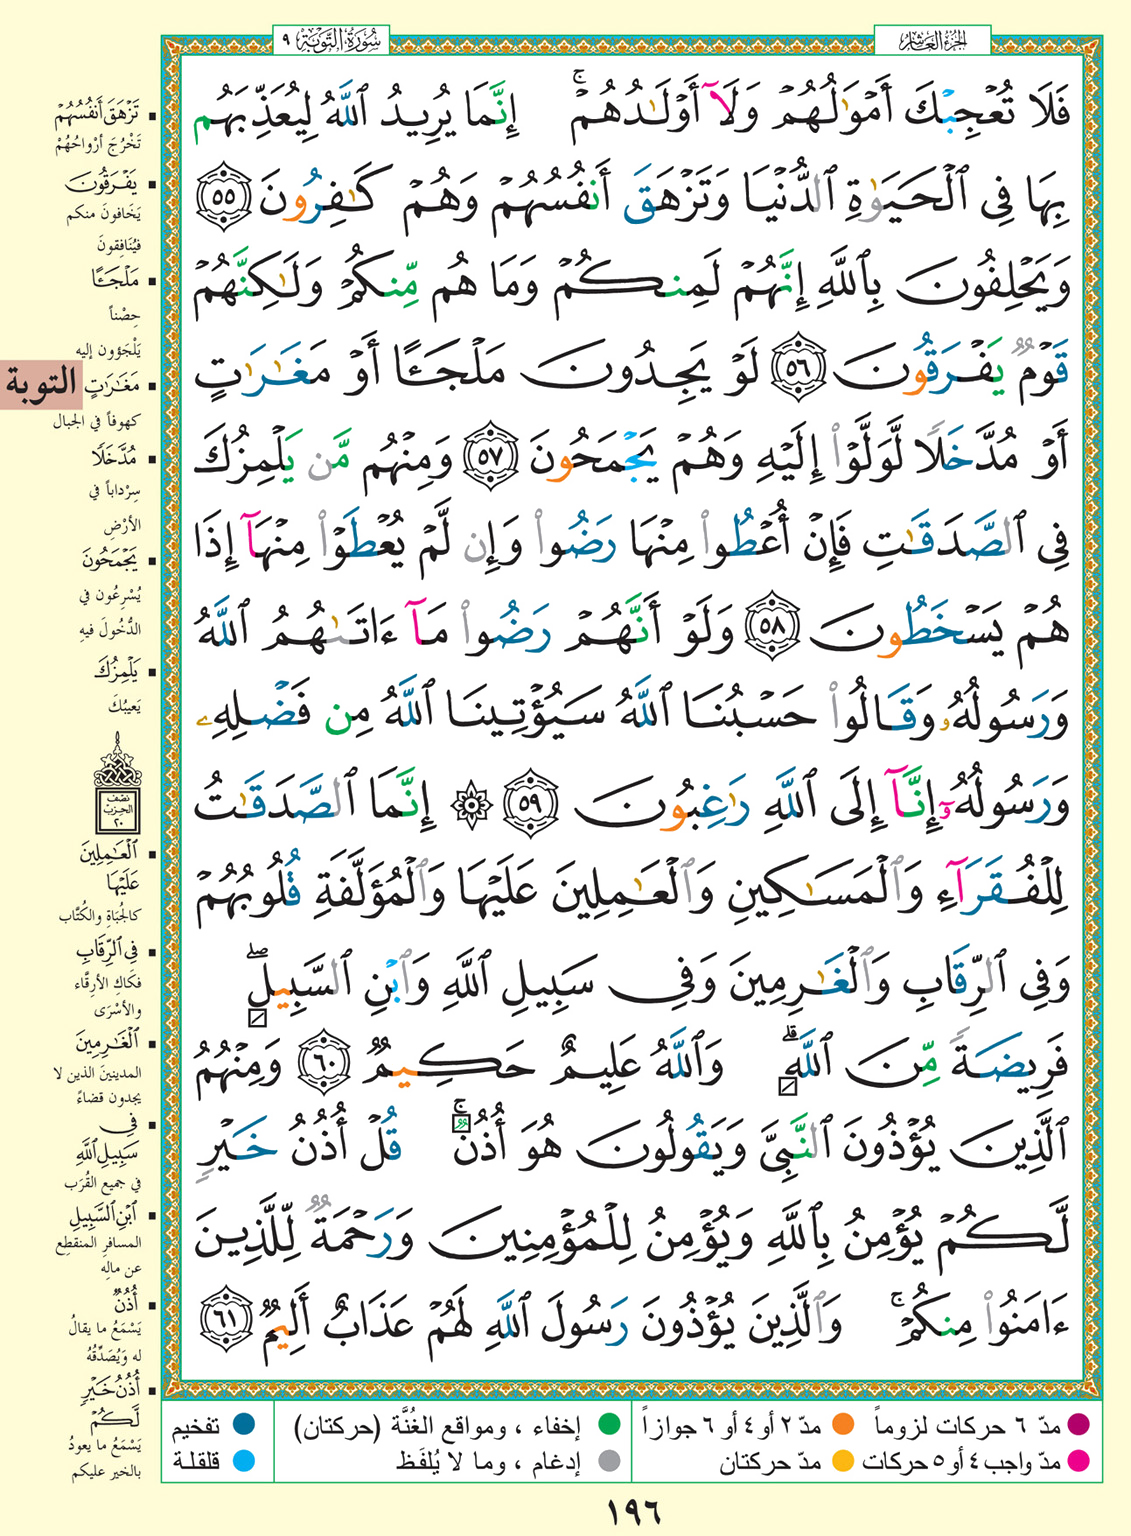 الجزء العاشر
سُورَةُ التَّوْبَة ٩
فَلَا تُعْجِبْكَ أَمْوَٰلُهُمْ وَلَآ أَوْلَـٰدُهُمْ ۚ إِنَّمَا يُرِيدُ ٱللَّهُ لِيُعَذِّبَهُم
بِهَا فِى ٱلْحَيَوٰةِ ٱلدُّنْيَا وَتَزْهَقَ أَنفُسُهُمْ وَهُمْ كَـٰفِرُونَ ٥٥
وَيَحْلِفُونَ بِٱللَّهِ إِنَّهُمْ لَمِنكُمْ وَمَا هُم مِّنكُمْ وَلَـٰكِنَّهُمْ
قَوْمٌ يَفْرَقُونَ ٥٦ لَوْ يَجِدُونَ مَلْجَـًٔا أَوْ مَغَـٰرَٰتٍ
أَوْ مُدَّخَلًا لَّوَلَّوْا۟ إِلَيْهِ وَهُمْ يَجْمَحُونَ ٥٧ وَمِنْهُم مَّن يَلْمِزُكَ
فِى ٱلصَّدَقَـٰتِ فَإِنْ أُعْطُوا۟ مِنْهَا رَضُوا۟ وَإِن لَّمْ يُعْطَوْا۟ مِنْهَآ إِذَا
هُمْ يَسْخَطُونَ ٥٨ وَلَوْ أَنَّهُمْ رَضُوا۟ مَآ ءَاتَىٰهُمُ ٱللَّهُ
وَرَسُولُهُۥ وَقَالُوا۟ حَسْبُنَا ٱللَّهُ سَيُؤْتِينَا ٱللَّهُ مِن فَضْلِهِۦ
وَرَسُولُهُۥٓ إِنَّآ إِلَى ٱللَّهِ رَٰغِبُونَ ٥٩ ۞ إِنَّمَا ٱلصَّدَقَـٰتُ
لِلْفُقَرَآءِ وَٱلْمَسَـٰكِينِ وَٱلْعَـٰمِلِينَ عَلَيْهَا وَٱلْمُؤَلَّفَةِ قُلُوبُهُمْ
وَفِى ٱلرِّقَابِ وَٱلْغَـٰرِمِينَ وَفِى سَبِيلِ ٱللَّهِ وَٱبْنِ ٱلسَّبِيلِ ۖ
فَرِيضَةً مِّنَ ٱللَّهِ ۗ وَٱللَّهُ عَلِيمٌ حَكِيمٌ ٦٠ وَمِنْهُمُ
ٱلَّذِينَ يُؤْذُونَ ٱلنَّبِىَّ وَيَقُولُونَ هُوَ أُذُنٌ ۚ قُلْ أُذُنُ خَيْرٍ
لَّكُمْ يُؤْمِنُ بِٱللَّهِ وَيُؤْمِنُ لِلْمُؤْمِنِينَ وَرَحْمَةٌ لِّلَّذِينَ
ءَامَنُوا۟ مِنكُمْ ۚ وَٱلَّذِينَ يُؤْذُونَ رَسُولَ ٱللَّهِ لَهُمْ عَذَابٌ أَلِيمٌ ٦١
تَزْهَقَ أَنفُسُهُمْ
تَخْرُجَ أرْوَاحُهُمْ
يَفْرَقُونَ
يَخَافونَ منكم
فيُنَافِقونَ
مَلْجَـًٔا
حِصْناً
يَلْجَؤون إليه
مَغَـٰرَٰتٍ
كهوفاً في الجبال
مُدَّخَلًا
سِرْداباً في
الأرْضِ
يَجْمَحُونَ
يُسْرِعُون في
الدُّخُولَ فيهِ
يَلْمِزُكَ
يَعيبُكَ
نصف
الحزب
٢٠
ٱلْعَـٰمِلِينَ
عَلَيْهَا
كالجُبَاةِ والكُتَّاب
فِى ٱلرِّقَابِ
فكَاكِ الأرِقَّاء
والأسْرَى
ٱلْغَـٰرِمِينَ
المدينينَ الذين لا
يجدون قضاءً
فِى
سَبِيلِ ٱللَّهِ
في جميع القُرَب
ٱبْنِ ٱلسَّبِيلِ
المسافرِ المنقطِع
عن مالِه
أُذُنٌ
يَسْمَعُ ما يقالُ
له وَيُصَدِّقُهُ
أُذُنُ خَيْرٍ
لَّكُمْ
يَسْمَعُ ما يعودُ
بالخير عليكم
التوبة
مدّ ٦ حركات لزوماً
مدّ ٢ أو ٤ أو ٦ جوازاً
إخفاء ، ومواقع الغُنَّة (حركتان)
تفخيم
مدّ واجب ٤ أو ٥ حركات
مدّ حركتان
إدغام ، وما لا يُلفَظ
قلقلة
١٩٦